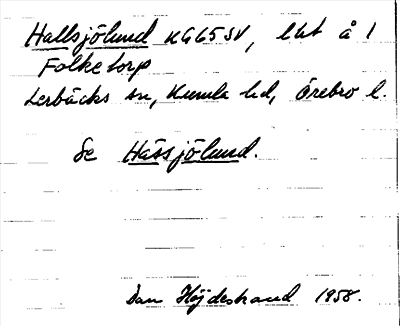 Hallsjölund KG65SV, lht å 1
Folketorp
Lerbäcks sn, Kumla hd, Örebro l.
Se Hässjölund.
Dan Höjdestrand 1958.